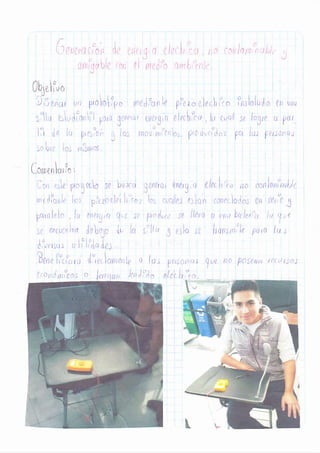 Generación de energía electrica, no contaminable y
amigable con el medio ambiente.
Objetivo:
Diseñar un prototipo mediante piezoelectrico instalado en una
silla estudiantil para generar energia electrica, la cual se logre a par
tir de la presión y los movimientos, producidos por las personas
sobre las mismas.
Comentario:
Con este proyecto se busca generar energia electrica no contaminable
mediante los piezoelectricos los cuales estan conectados en serie y
paralelo, la energia que se produce se lleva a una bateria la que
se encuentra debajo de la silla y esta se transmite para las
diversas utilidades.
Beneficiara directamente a las personas que no poseen recursos
economicos o tengan tendido electrico.